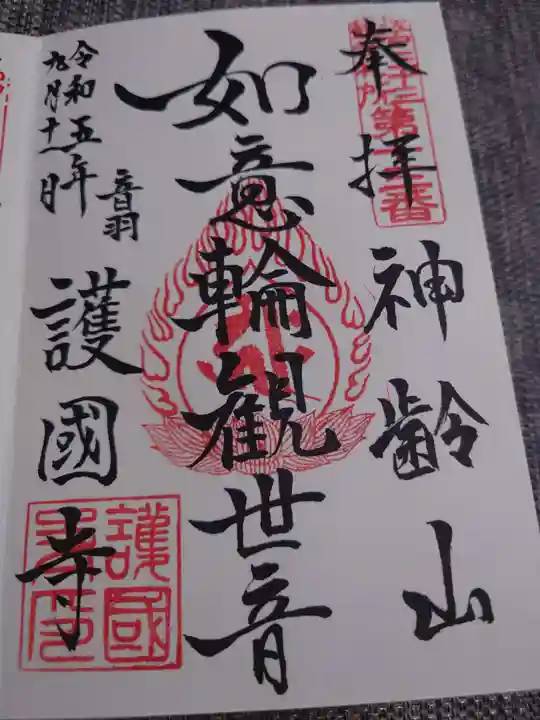 奉拝
神齢山
第十三番
如意輪観世音
令和五年
九月十一日
音羽
護國寺
護國